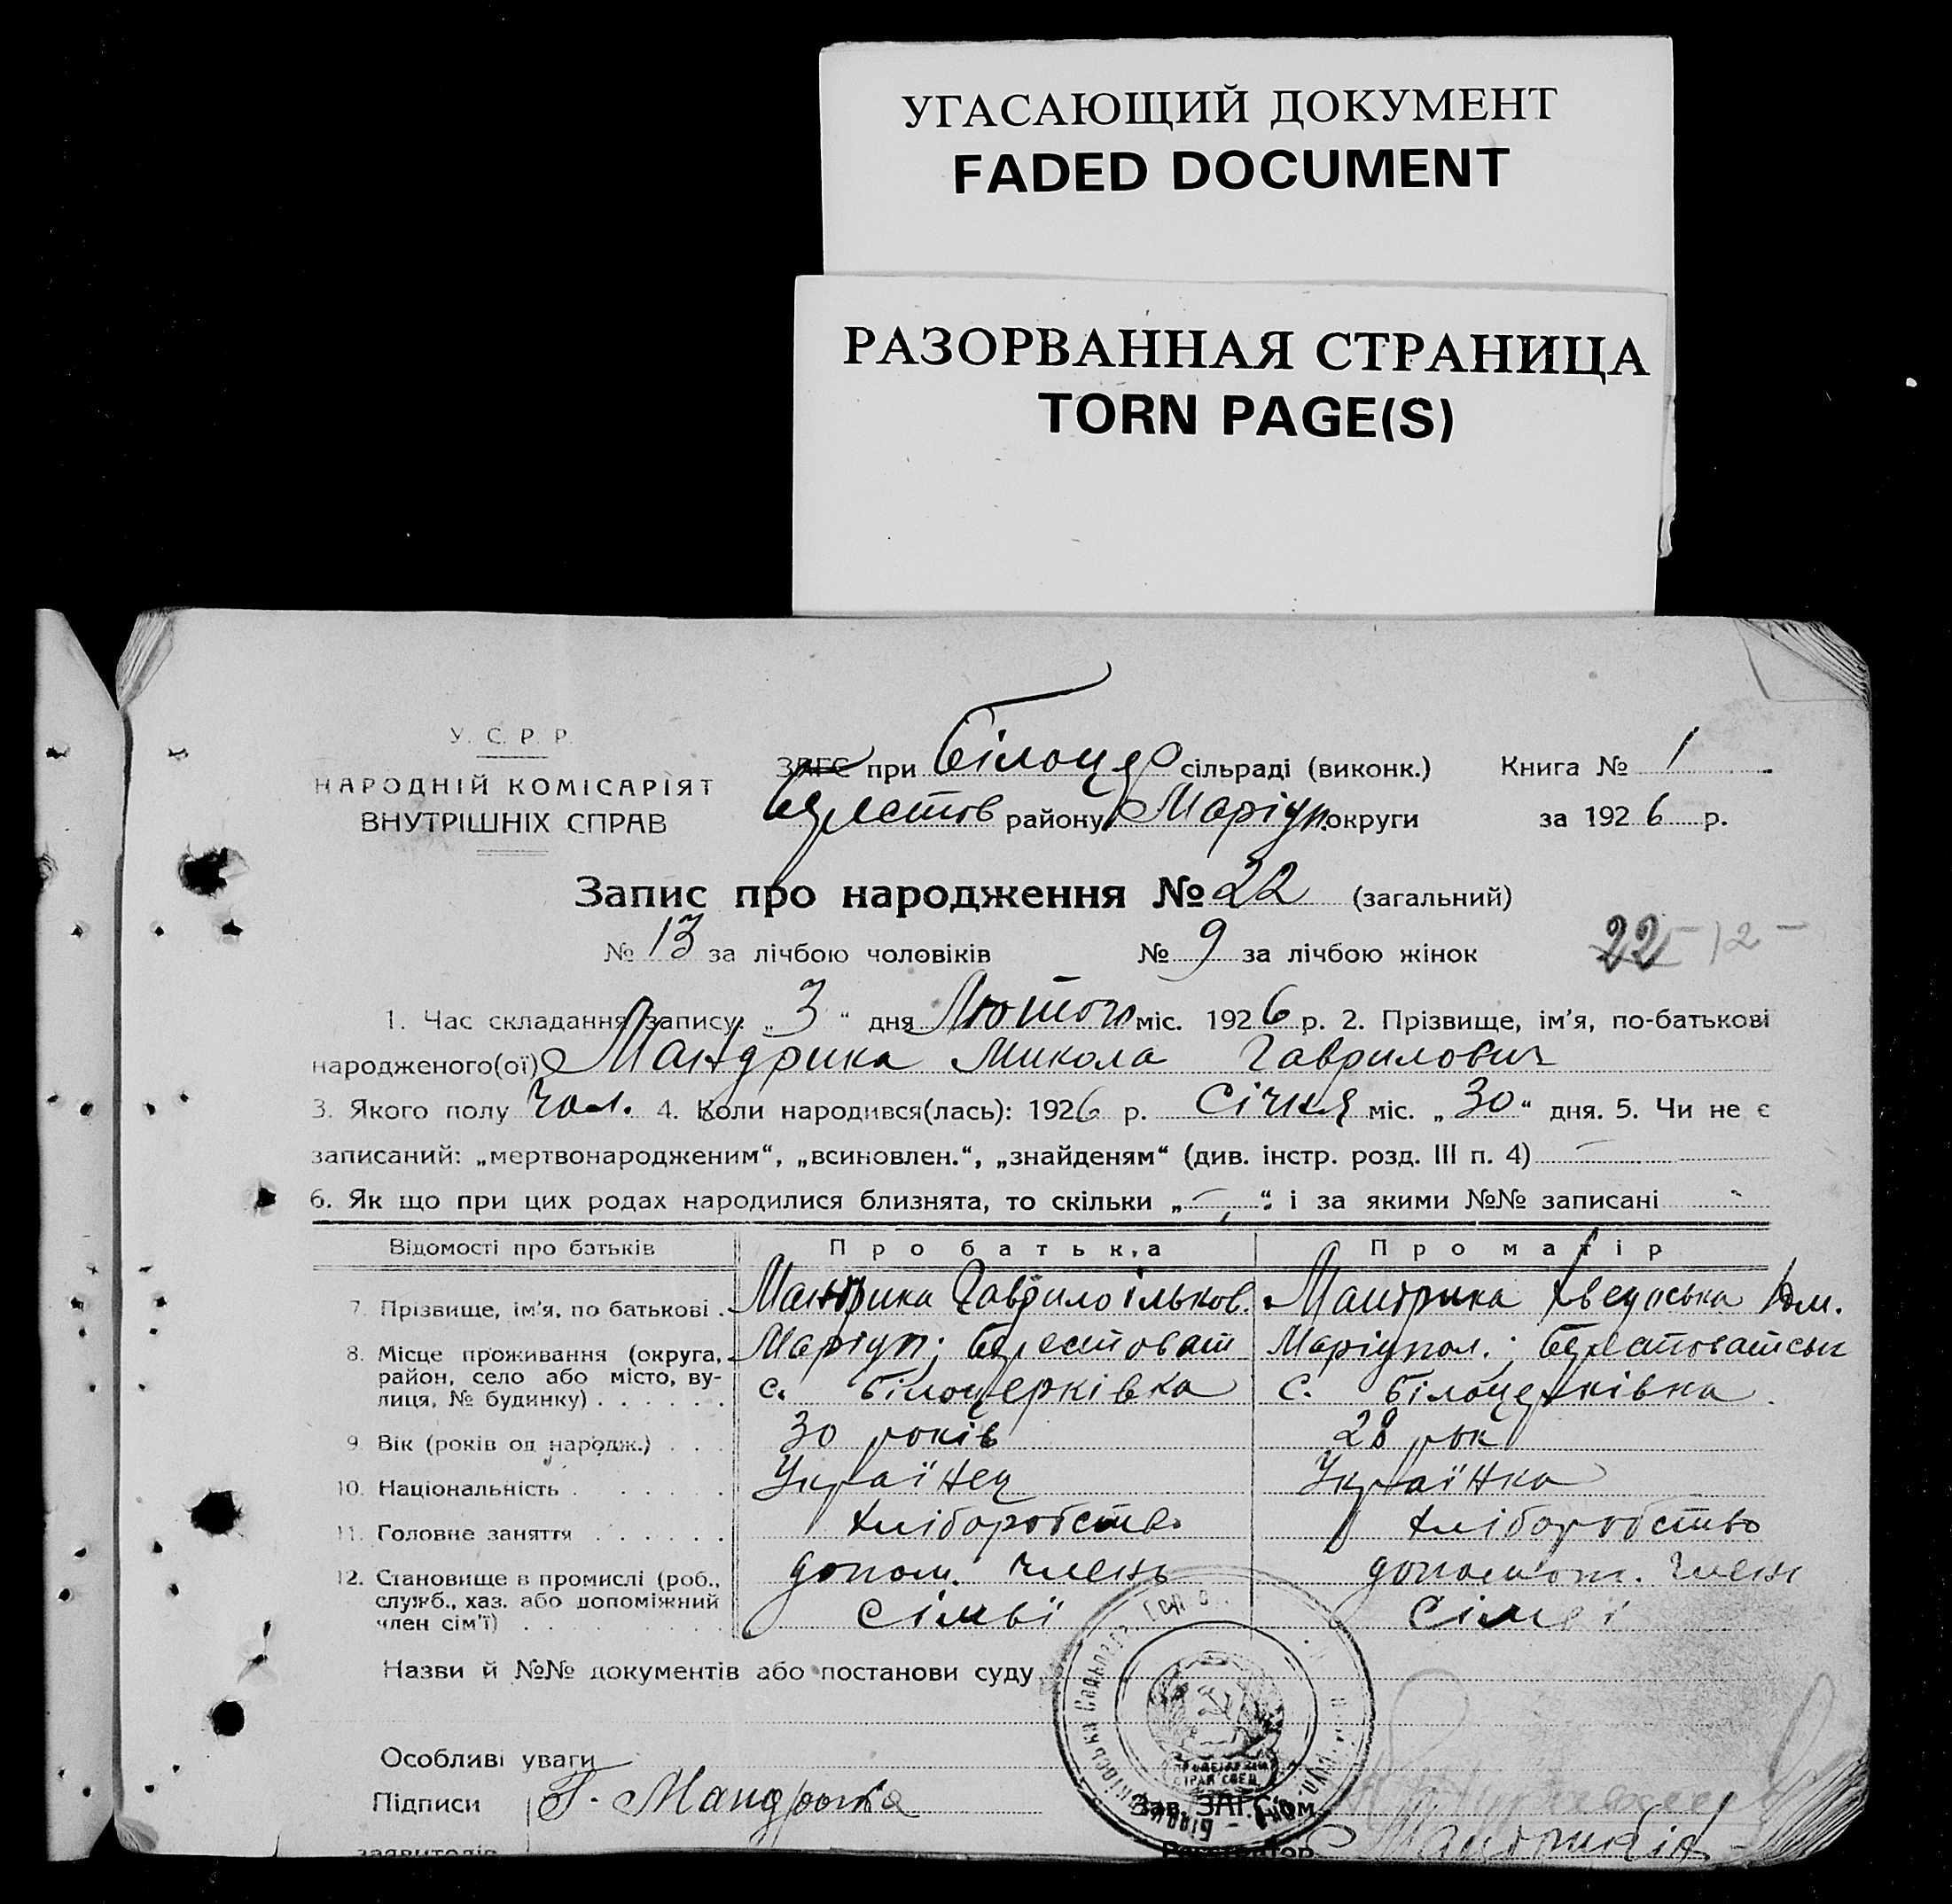 УГАСАЮЩИЙ ДОКУМЕНТ
FADED DOCUMENT
РАЗОРВАННАЯ СТРАНИЦА
TORN PAGE(S)
У. С. Р. Р.
НАРОДНІЙ КОМІСАРІЯТ
ВНУТРІШНІХ СПРАВ
ЗАГС при Білоцер сільраді (виконк.) Книга № 1
Берестов району Маріуп. округи за 1926 р.
Запис про народження № 22 (загальний)
№ 13 за лічбою чоловіків № 9 за лічбою жінок
22 - 12 -
1. Час складання запису: „3“ дня Лютого міс. 1926 р. 2. Прізвище, ім'я, по-батькові
народженого(ої) Мандрика Микола Гаврилович
3. Якого полу Чол. 4. Коли народився(лась): 1926 р. Січня міс. „30“ дня. 5. Чи не є
записаний: „мертвонародженим“, „всиновлен.“, „знайденям“ (див. інстр. розд. III п. 4) —
6. Як що при цих родах народилися близнята, то скільки „—“ і за якими №№ записані -
Відомості про батьків Про батька Про матір
7. Прізвище, ім'я, по батькові . Мандрика Гаврило ільков. Мандрика Хведоська
8. Місце проживання (округа, Маріуп; берестоват Маріупол.; берестоватськ
район, село або місто, ву- с. білоцерківка с. білоцерківка
лиця, № будинку) . . . . . .
9. Вік (років од народж.) . . . 30 років 28 рок
10. Національність . . . . . . Українец Українка
11. Головне заняття . . . . . . хліборобство хліборобство
12. Становище в промислі (роб., допом. член допомот. член
служб., хаз. або допоміжний сімьї сімьї
член сім'ї) . . . . . . . .
Назви й №№ документів або постанови суду
Особливі уваги
Підписи Г. Мандрика
Зав. ЗАГС'ом
заявителів
Реєстратор